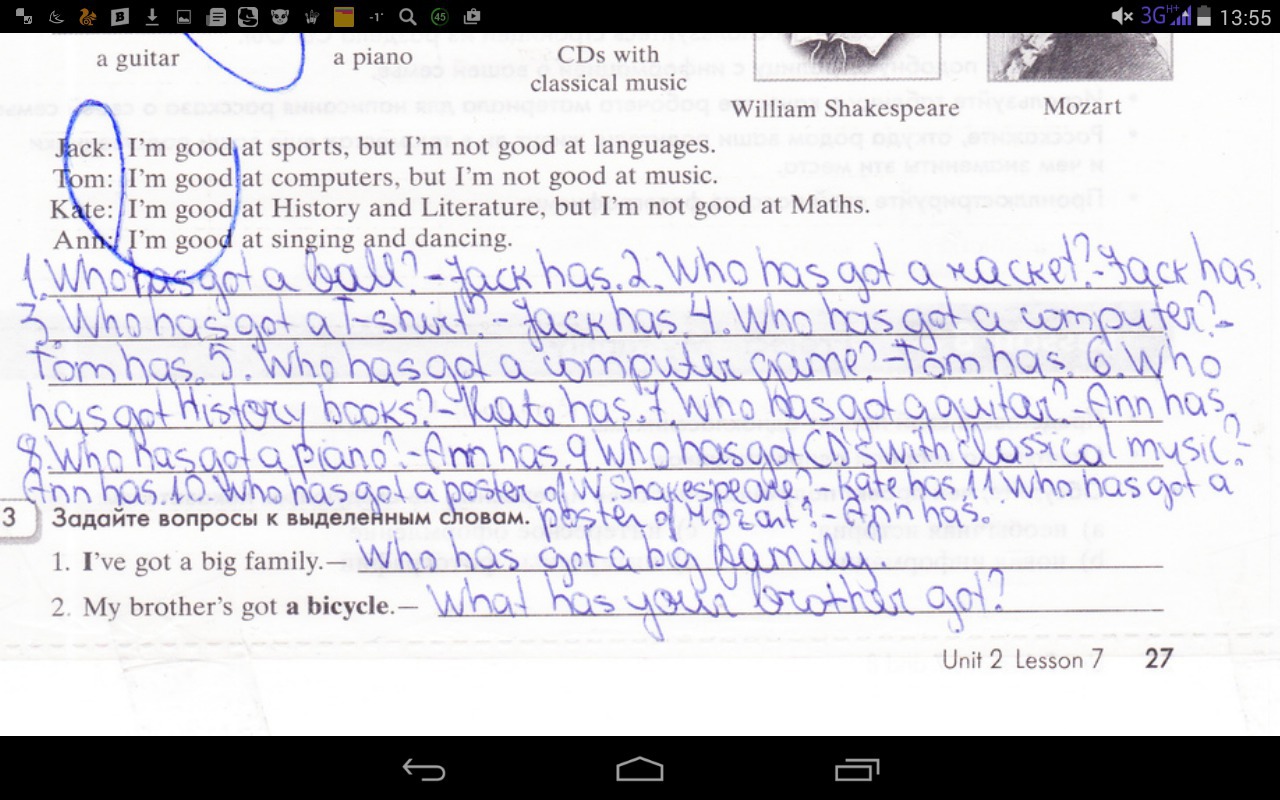 45 -1° 3G H+ 13:55
a guitar a piano CDs with
classical music
William Shakespeare Mozart
Jack: I'm good at sports, but I'm not good at languages.
Tom: I'm good at computers, but I'm not good at music.
Kate: I'm good at History and Literature, but I'm not good at Maths.
Ann: I'm good at singing and dancing.
1. Who has got a ball? - Jack has. 2. Who has got a racket? - Jack has.
3. Who has got a T-shirt? - Jack has 4. Who has got a computer? -
Tom has. 5. Who has got a computer game? - Tom has. 6. Who
has got History books? - Kate has. 7 Who has got a guitar? - Ann has.
8. Who has got a piano? - Ann has. 9. Who has got CD's with classical music? -
Ann has. 10. Who has got a poster of W. Shakespeare? - Kate has. 11. Who has got a
poster of Mozart? - Ann has.
3 Задайте вопросы к выделенным словам.
1. I've got a big family. — Who has got a big family
2. My brother's got a bicycle. — What has your brother got?
Unit 2 Lesson 7 27